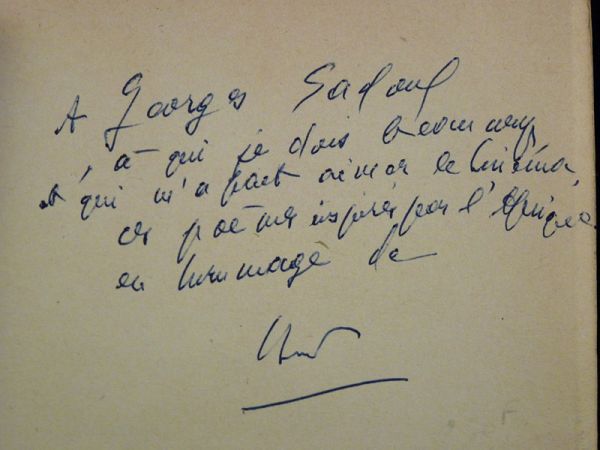 A Georges Sadoul
, à qui je dois beaucoup
et qui m'a fait aimer le Cinéma,
ces poèmes inspirés par l'Afrique
en hommage de